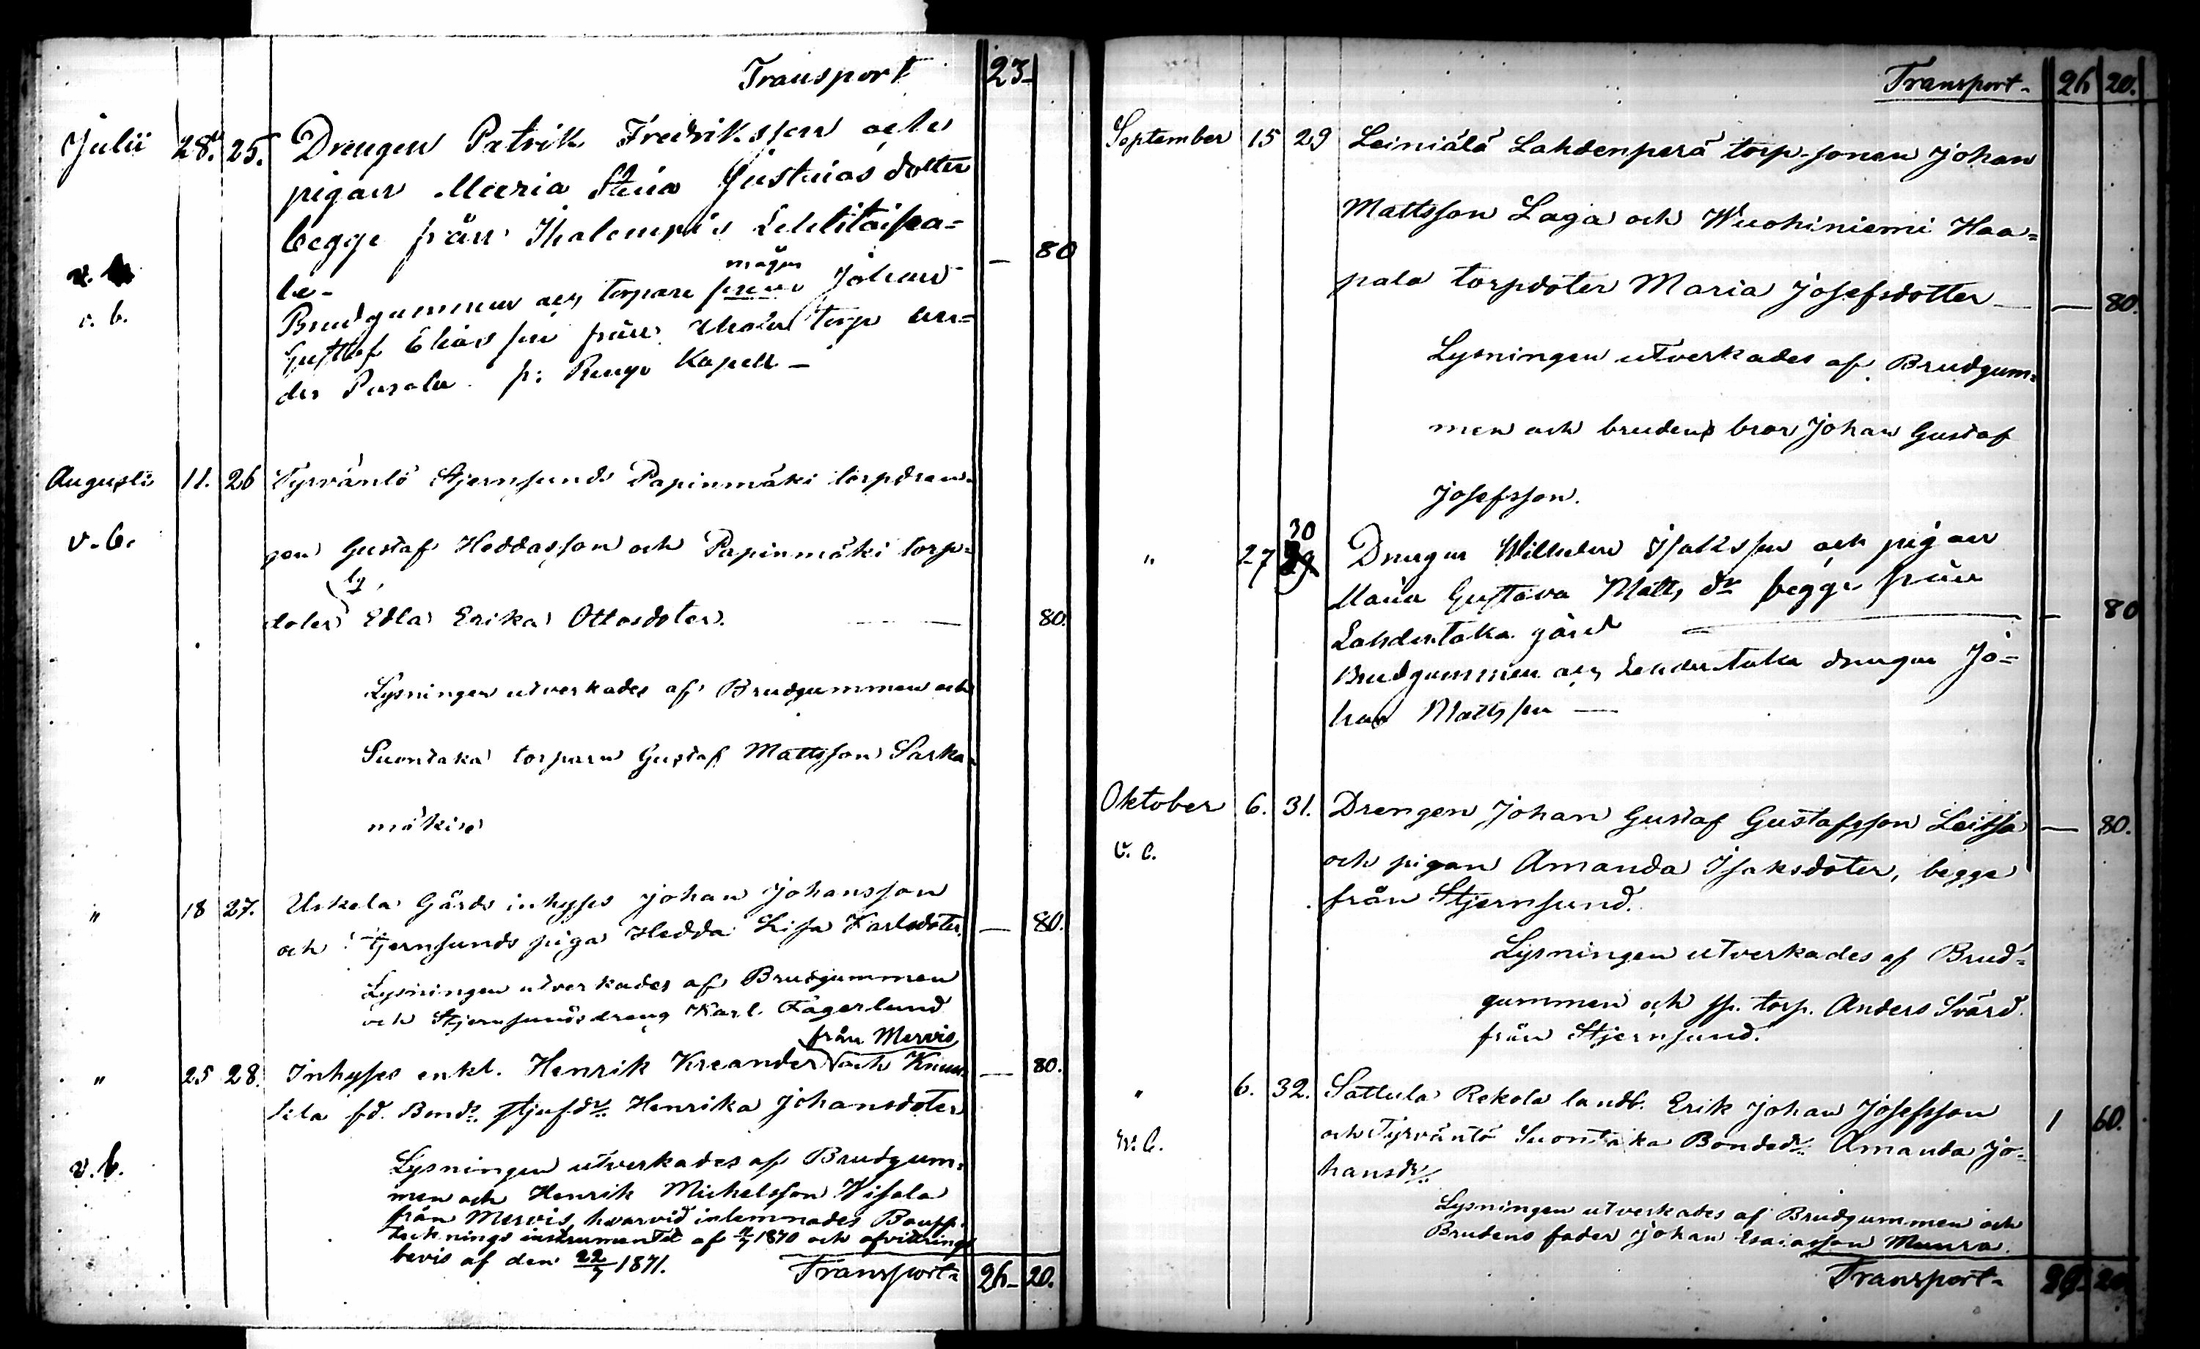 Transport 23-
Julii 28. 25. Drengen Patrik Fredriksson och
pigan Maria Stina Gustavas dotter
begge från Ihalempis
la- — 80
mågen
v. b. Brudgummen och torpare Johan
Gustaf Eliasson från torp un-
der Parola fr: Rengo Kapell —
Augusti 11. 26 Tyrväntö Stjernsunds Papinmäki torpdren-
v. b. gen Gustaf Heddasson och Papinmäki torp-
doter Edla Erika Ottosdoter. — 80.
Lysningen utverkades af Brudgummen och
Suontaka torparn Gustaf Mattsson Sarka-
mäki
" 18 27. Uskela Gårds inhyses Johan Johansson
och Stjernsunds piga Hedda Lisa Karlsdoter. — 80.
Lysningen utverkades af Brudgummen
och Stjernsunds dreng Karl Fagerlund
från Mervis
" 25 28. Inhyses enkl. Henrik Kreander och
kla fd. Bonds stjufdr. Henrika Johansdoter — 80.
v. b. Lysningen utverkades af Brudgum-
men och Henrik Michelsson Wisala
från Mervis, hvarvid inlemnades Boupp-
teckningsinstrumentet af 1870 och afvittrings
bevis af den 22/7 1871.
Transport- 26- 20.
Transport- 26 20.
September 15 29 Leiniälä Lahdenperä torp-sonen Johan
Mattsson Laga och Wuohiniemi Haa-
pala torpdoter Maria Josefsdotter — 80.
Lysningen utverkades af Brudgum-
men och brudens bror Johan Gustaf
Josefsson.
" 27 30 Drengen Wilhelm Isaksson och pigan
Maria Gustava Matts dr begge från
Lahdentaka gård — 80
Brudgummen och Lahdentaka drengen Jo-
han Mattsson —
Oktober 6. 31. Drengen Johan Gustaf Gustafsson Leissa — 80.
v. b. och pigan Amanda Isaksdoter, begge
från Stjernsund.
Lysningen utverkades af Brud-
gummen och sp. torp. Anders Svärd
från Stjernsund.
" 6. 32. Sattula Rekola landb. Erik Johan Josefsson
v. b. och Tyrväntö Suontaka Bondedr. Amanda Jo- 1 60.
hansdr.
Lysningen utverkades af Brudgummen och
Brudens fader Johan Esaiasson Muura.
Transport- 29- 20